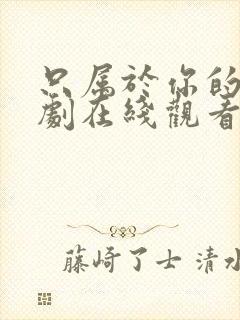 只属於你的
劇在綫觀看
藤崎了士 清水